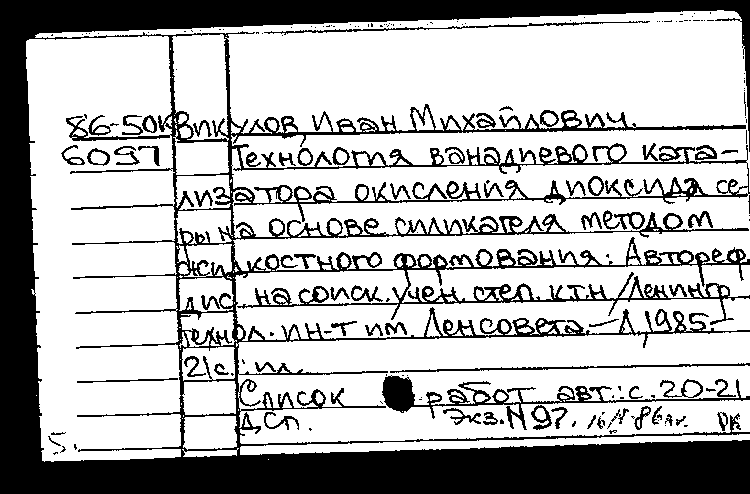 86-50к Викулов, Иван Михайлович.
6097 Технология ванадиевого ката-
лизатора окисления диоксида се-
ры на основе силикагеля методом
жидкостного формования: Автореф.
дис. на соиск. учен. степ. к.т.н /Ленингр.
технол. ин-т им. Ленсовета. — Л, 1985.—
21с.: ил.
Список работ авт.: с. 20-21.
ДСП. Экз. N 97.
5.